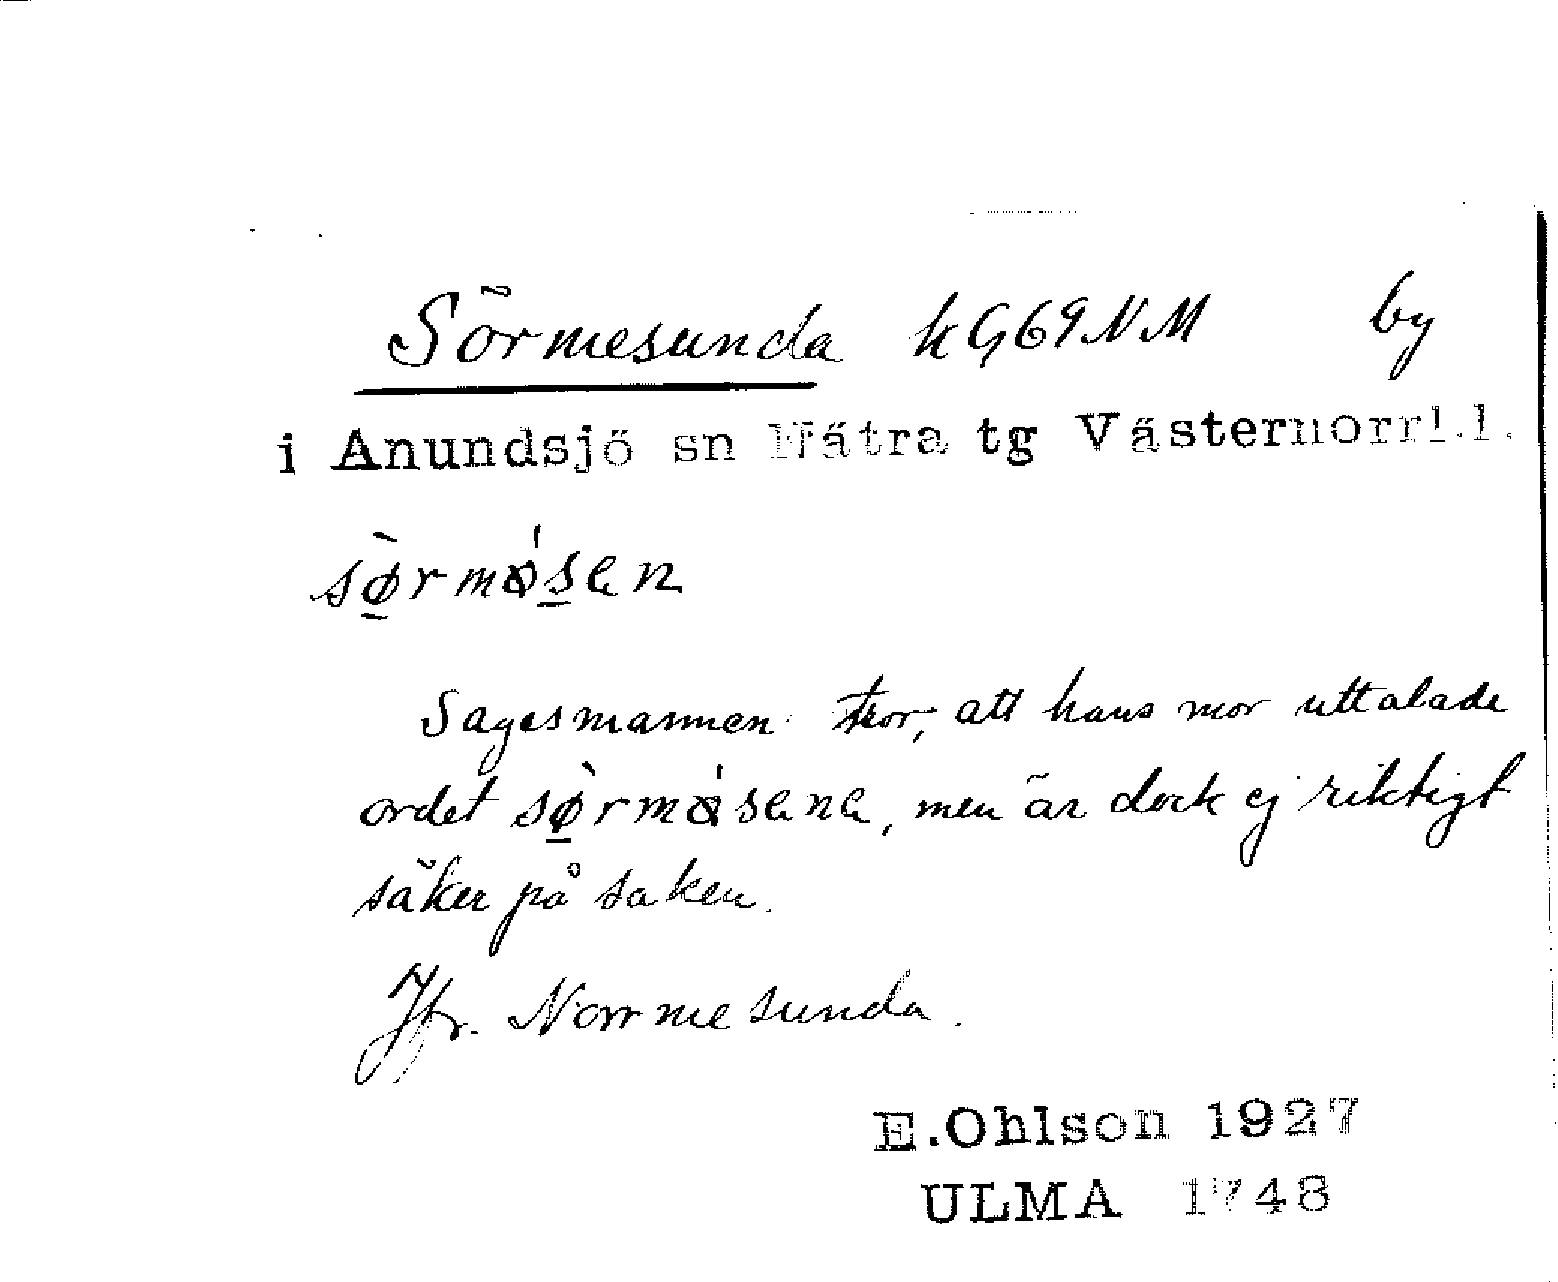 Sörmesunda kG69NM by
i Anundsjö sn Nätra tg Västernorrl.l.
sø̀rmǿsen
Sagesmannen tror, att hans mor uttalade
ordet sø̀rmǿsene, men är dock ej riktigt
säker på saken.
Jfr. Norrmesunda.
E.Ohlson 1927
ULMA 1748